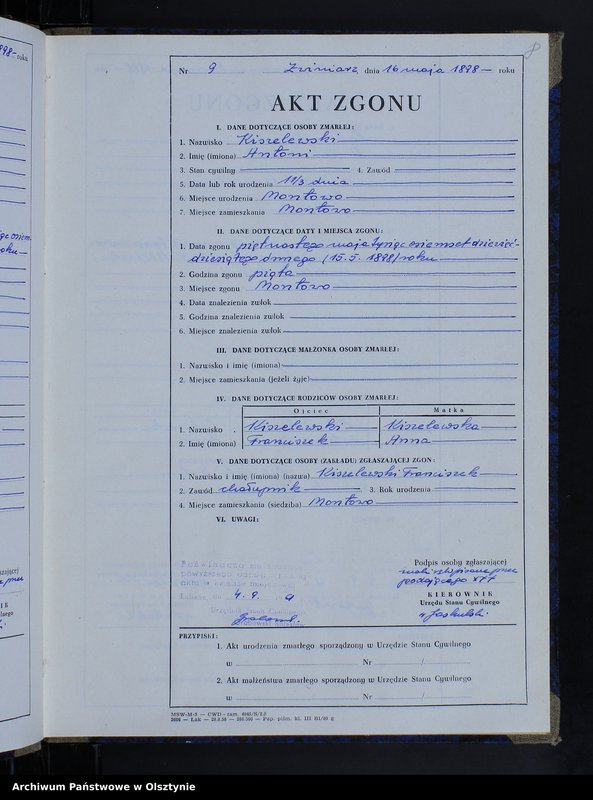 Nr 9 Zwiniarz, dnia 16 maja 1898 — roku
AKT ZGONU
I. DANE DOTYCZĄCE OSOBY ZMARŁEJ:
1. Nazwisko Kiszelewski
2. Imię (imiona) Antoni
3. Stan cywilny 4. Zawód
5. Data lub rok urodzenia 1 1/3 dnia
6. Miejsce urodzenia Montowo
7. Miejsce zamieszkania Montowo
II. DANE DOTYCZĄCE DATY I MIEJSCA ZGONU:
1. Data zgonu piętnastego maja tysiąc osiemset dziewięć-
dziesiątego ósmego (15.5.1898) roku
2. Godzina zgonu piąta
3. Miejsce zgonu Montowo
4. Data znalezienia zwłok
5. Godzina znalezienia zwłok
6. Miejsce znalezienia zwłok
III. DANE DOTYCZĄCE MAŁŻONKA OSOBY ZMARŁEJ:
1. Nazwisko i imię (imiona)
2. Miejsce zamieszkania (jeżeli żyje)
IV. DANE DOTYCZĄCE RODZICÓW OSOBY ZMARŁEJ:
Ojciec Matka
1. Nazwisko . Kiszelewski Kiszelewska
2. Imię (imiona) Franciszek Anna
V. DANE DOTYCZĄCE OSOBY (ZAKŁADU) ZGŁASZAJĄCEJ ZGON:
1. Nazwisko i imię (imiona) (nazwa) Kiszelewski Franciszek
2. Zawód chałupnik 3. Rok urodzenia
4. Miejsce zamieszkania (siedziba) Montowo
VI. UWAGI:
Podpis osoby zgłaszającej
podającego XXX
KIEROWNIK
Urzędu Stanu Cywilnego
PRZYPISKI:
1. Akt urodzenia zmarłego sporządzony w Urzędzie Stanu Cywilnego
w Nr /
2. Akt małżeństwa zmarłego sporządzony w Urzędzie Stanu Cywilnego
w Nr /
Archiwum Państwowe w Olsztynie